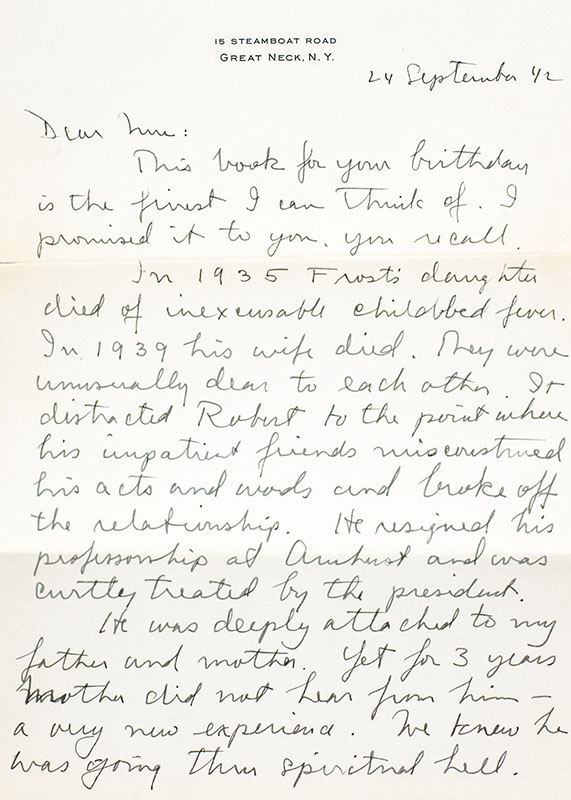 15 STEAMBOAT ROAD
GREAT NECK, N. Y.
24 September 42
Dear
This book for your birthday
is the finest I can think of. I
promised it to you, you recall.
In 1935 Frost's daughter
died of inexcusable childbed fever.
In 1939 his wife died. They were
unusually dear to each other. It
distracted Robert to the point where
his impatient friends misconstrued
his acts and words and broke off
the relationship. He resigned his
professorship at Amherst and was
curtly treated by the president.
He was deeply attached to my
father and mother. Yet for 3 years
Mother did not hear from him –
a very new experience. We knew he
was going thru spiritual hell.